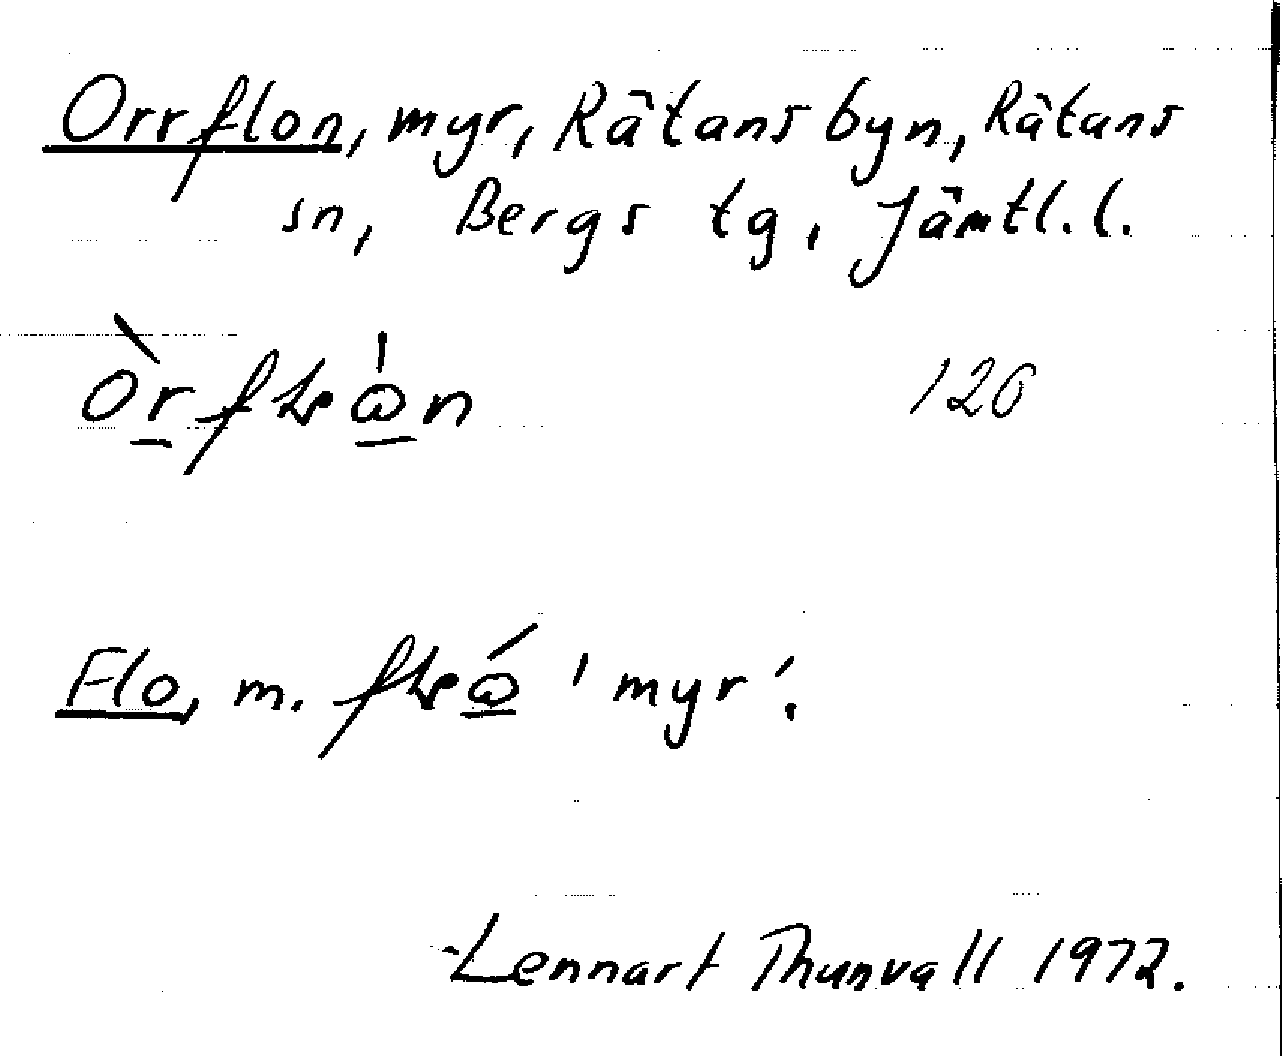 Orrflon, myr, Rätansbyn, Rätans
sn, Bergs tg, Jämtl.l.
120
Flo, m. 'myr'.
Lennart Thunvall 1972.